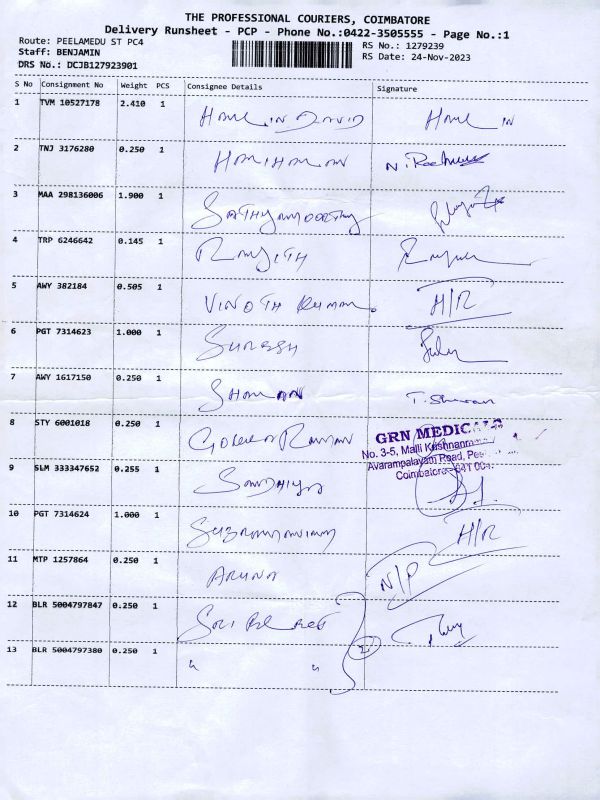 THE PROFESSIONAL COURIERS, COIMBATORE
Delivery Runsheet - PCP - Phone No.:0422-3505555 - Page No.:1
Route: PEELAMEDU ST PC4
RS No.: 1279239
Staff: BENJAMIN
RS Date: 24-Nov-2023
DRS No.: DCJB127923901
S No Consignment No Weight PCS Consignee Details Signature
1 TVM 10527178 2.410 1 DAVID
2 TNJ 3176280 0.250 1 HARIHARAN
3 MAA 298136006 1.900 1 SATHYAMOORTHY
4 TRP 6246642 0.145 1 RANJITH
5 AWY 382184 0.505 1 VINOTH KUMAR H/R
6 PGT 7314623 1.000 1 SURESH
7 AWY 1617150 0.250 1 T.
8 STY 6001018 0.250 1 RAMAN
GRN MEDICALS
No. 3-5, Malli Krishnamma
Avarampalayam Road,
Coimbatore
9 SLM 333347652 0.255 1 SANDHIYA
10 PGT 7314624 1.000 1 SUBRAMANIAM H/R
11 MTP 1257864 0.250 1 ARUNA N/P
12 BLR 5004797847 0.250 1
13 BLR 5004797380 0.250 1 " " 2